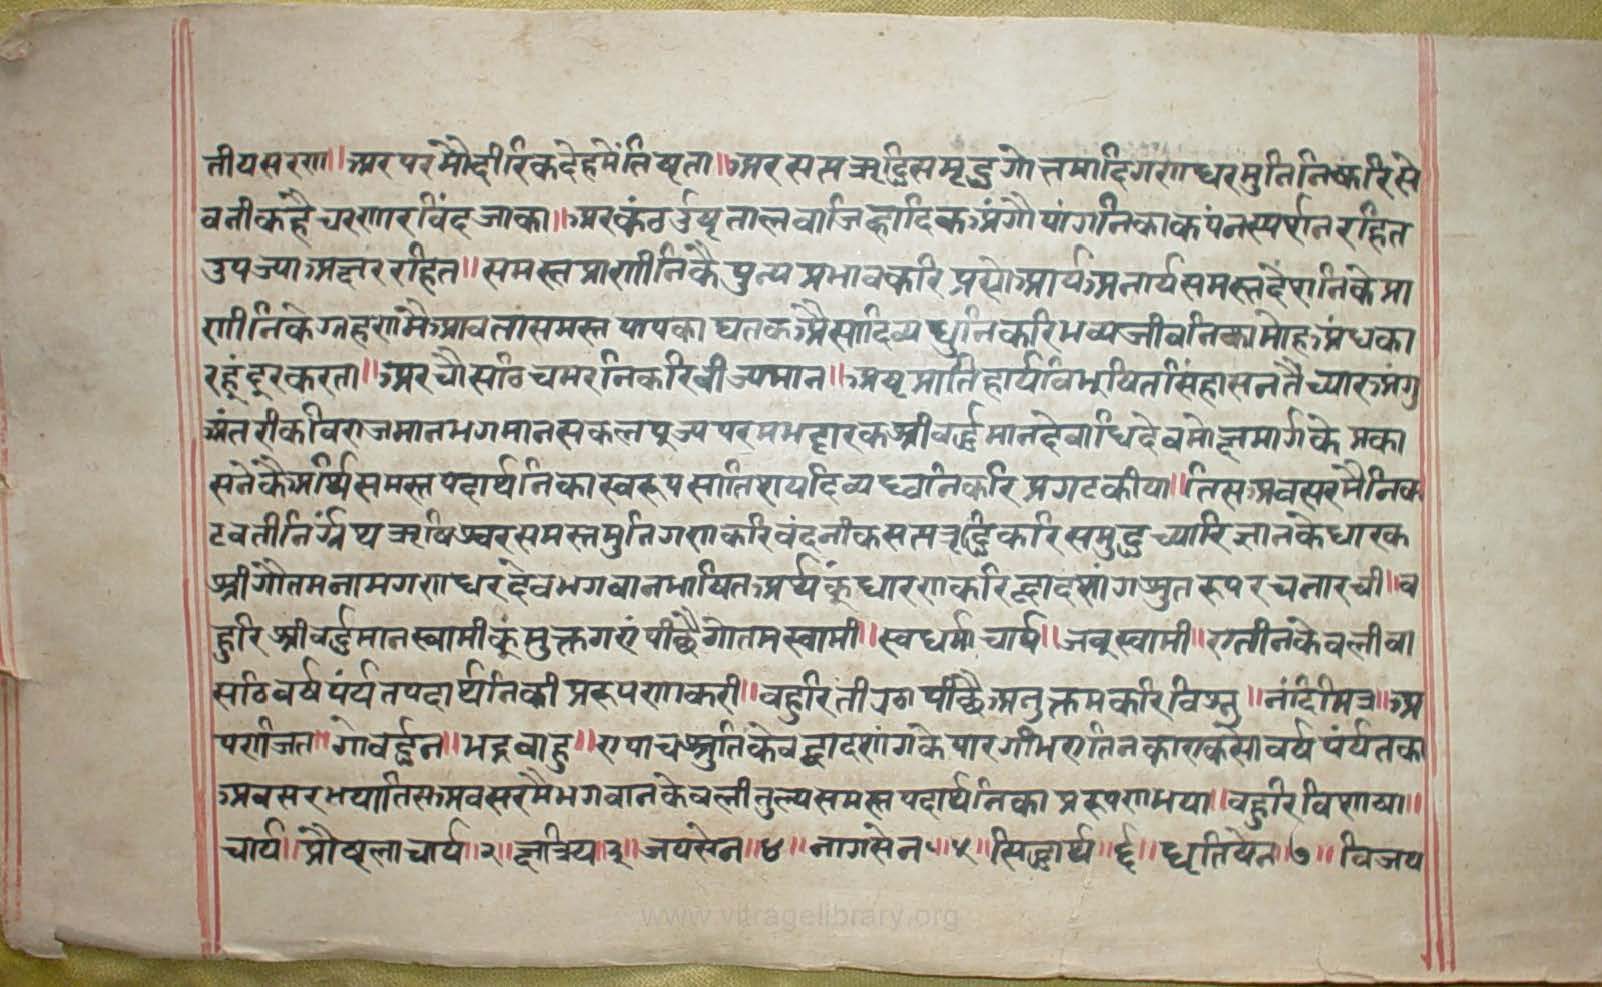 तीयसरण॥अरपरमौदारिकदेहमेंतिष्टता॥अरसप्तऋद्धिसमृद्धगोतमादिगणधरमुनिनिकरिसे
वनीकहैचरणारविंदजाका॥अरकंठउष्टतालवाजिव्हादिकअंगोपांगनिकाकंपनस्पर्शनरहित
उपज्याअक्षररहित॥समस्तप्राणीनिकैपुन्यप्रभावकरिप्रस्योआर्यअनार्यसमस्तदेशनिकेप्रा
णीनिकेग्रहणमैआवतासमस्तपापकाघतकअैसादिव्यधुनिकरिभव्यजीवनिकामोहअंधका
रहूंदूरकरता॥अरचौसठिचमरनिकरिवीज्यमान॥अष्टप्रातिहार्यविभूषितसिंहासनतैच्यारअंगु
अंतरीकविराजमानभगमानसकलपूज्यपरमभट्टारकश्रीवर्द्धमानदेवाधिदेवमोक्षमार्गकेप्रका
सनेकैअर्थिसमस्तपदार्थनिकास्वरूपसातिशयदिव्यध्वनिकरिप्रगटकीया॥तिसअवसरमैनिक
टवर्तीनिर्ग्रंथऋषिश्वरसमस्तमुनिगणकरिवंदनीकसप्तऋद्धिकरिसमुद्धच्यारिज्ञानकेधारक
श्रीगौतमनामगणधरदेवभगवानभाषितअर्थकूंधारणकरिद्वादसांगश्रुतरूपरचनारची॥व
हुरिश्रीवर्द्धमानस्वामीकूंमुक्तगएंपीछैगोतमस्वामी॥स्वधर्माचार्य॥जंबूस्वामी॥एतीनकेवलीवा
सठिवर्षपर्यंतपदार्थनिकीप्ररूपणाकरी॥वहुरितीएठापीछैअनुक्रमकरिविश्नु॥नंदिमित्र॥अ
पराजित॥गोवर्द्धन॥भद्रवाहु॥एपाचश्रुतिकेवद्वादशांगकेपारगामीभएतिनकाएकसोवर्षपर्यंतका
अवसरभयातिसअवसरमैभगवानकेवलीतुल्यसमस्तपदार्थनिकाप्ररूपणभया॥वहुरिविशाषा॥
चार्य॥प्रौष्ठलाचार्य॥२॥क्षत्रिय॥३॥जयसेन॥४॥नागसेन॥५॥सिद्धार्थ॥६॥धृतिषेन॥७॥विजय
www.vitragelibrary.org